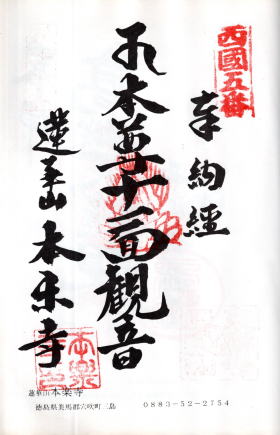 西國五番
奉納經
十一面観音
蓮華山 本楽寺
蓮華山本楽寺
徳島県美馬郡穴吹町三島　0883-52-2754